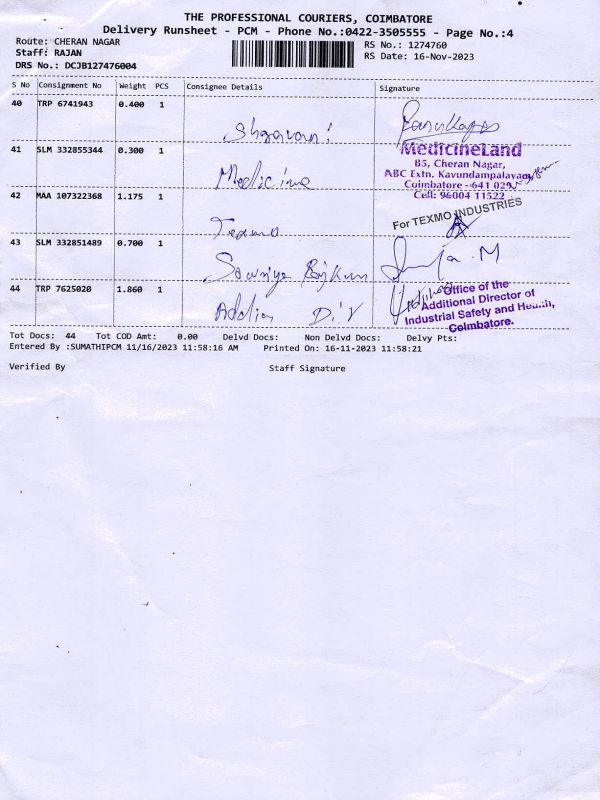 THE PROFESSIONAL COURIERS, COIMBATORE
Delivery Runsheet - PCM - Phone No.:0422-3505555 - Page No.:4
Route: CHERAN NAGAR
Staff: RAJAN
DRS No.: DCJB127476004
RS No.: 1274760
RS Date: 16-Nov-2023
S No Consignment No Weight PCS Consignee Details Signature
40 TRP 6741943 0.400 1
41 SLM 332855344 0.300 1 Medicine
MedicineLand
B5, Cheran Nagar,
ABC Extn. Kavundampalayam
Coimbatore - 641 029.
Cell: 96004 11522
42 MAA 107322368 1.175 1 Texmo
For TEXMO INDUSTRIES
43 SLM 332851489 0.700 1
44 TRP 7625020 1.860 1
Office of the
Additional Director of
Industrial Safety and Health,
Coimbatore.
Tot Docs: 44 Tot COD Amt: 0.00 Delvd Docs: Non Delvd Docs: Delvy Pts:
Entered By :SUMATHIPCM 11/16/2023 11:58:16 AM Printed On: 16-11-2023 11:58:21
Verified By Staff Signature